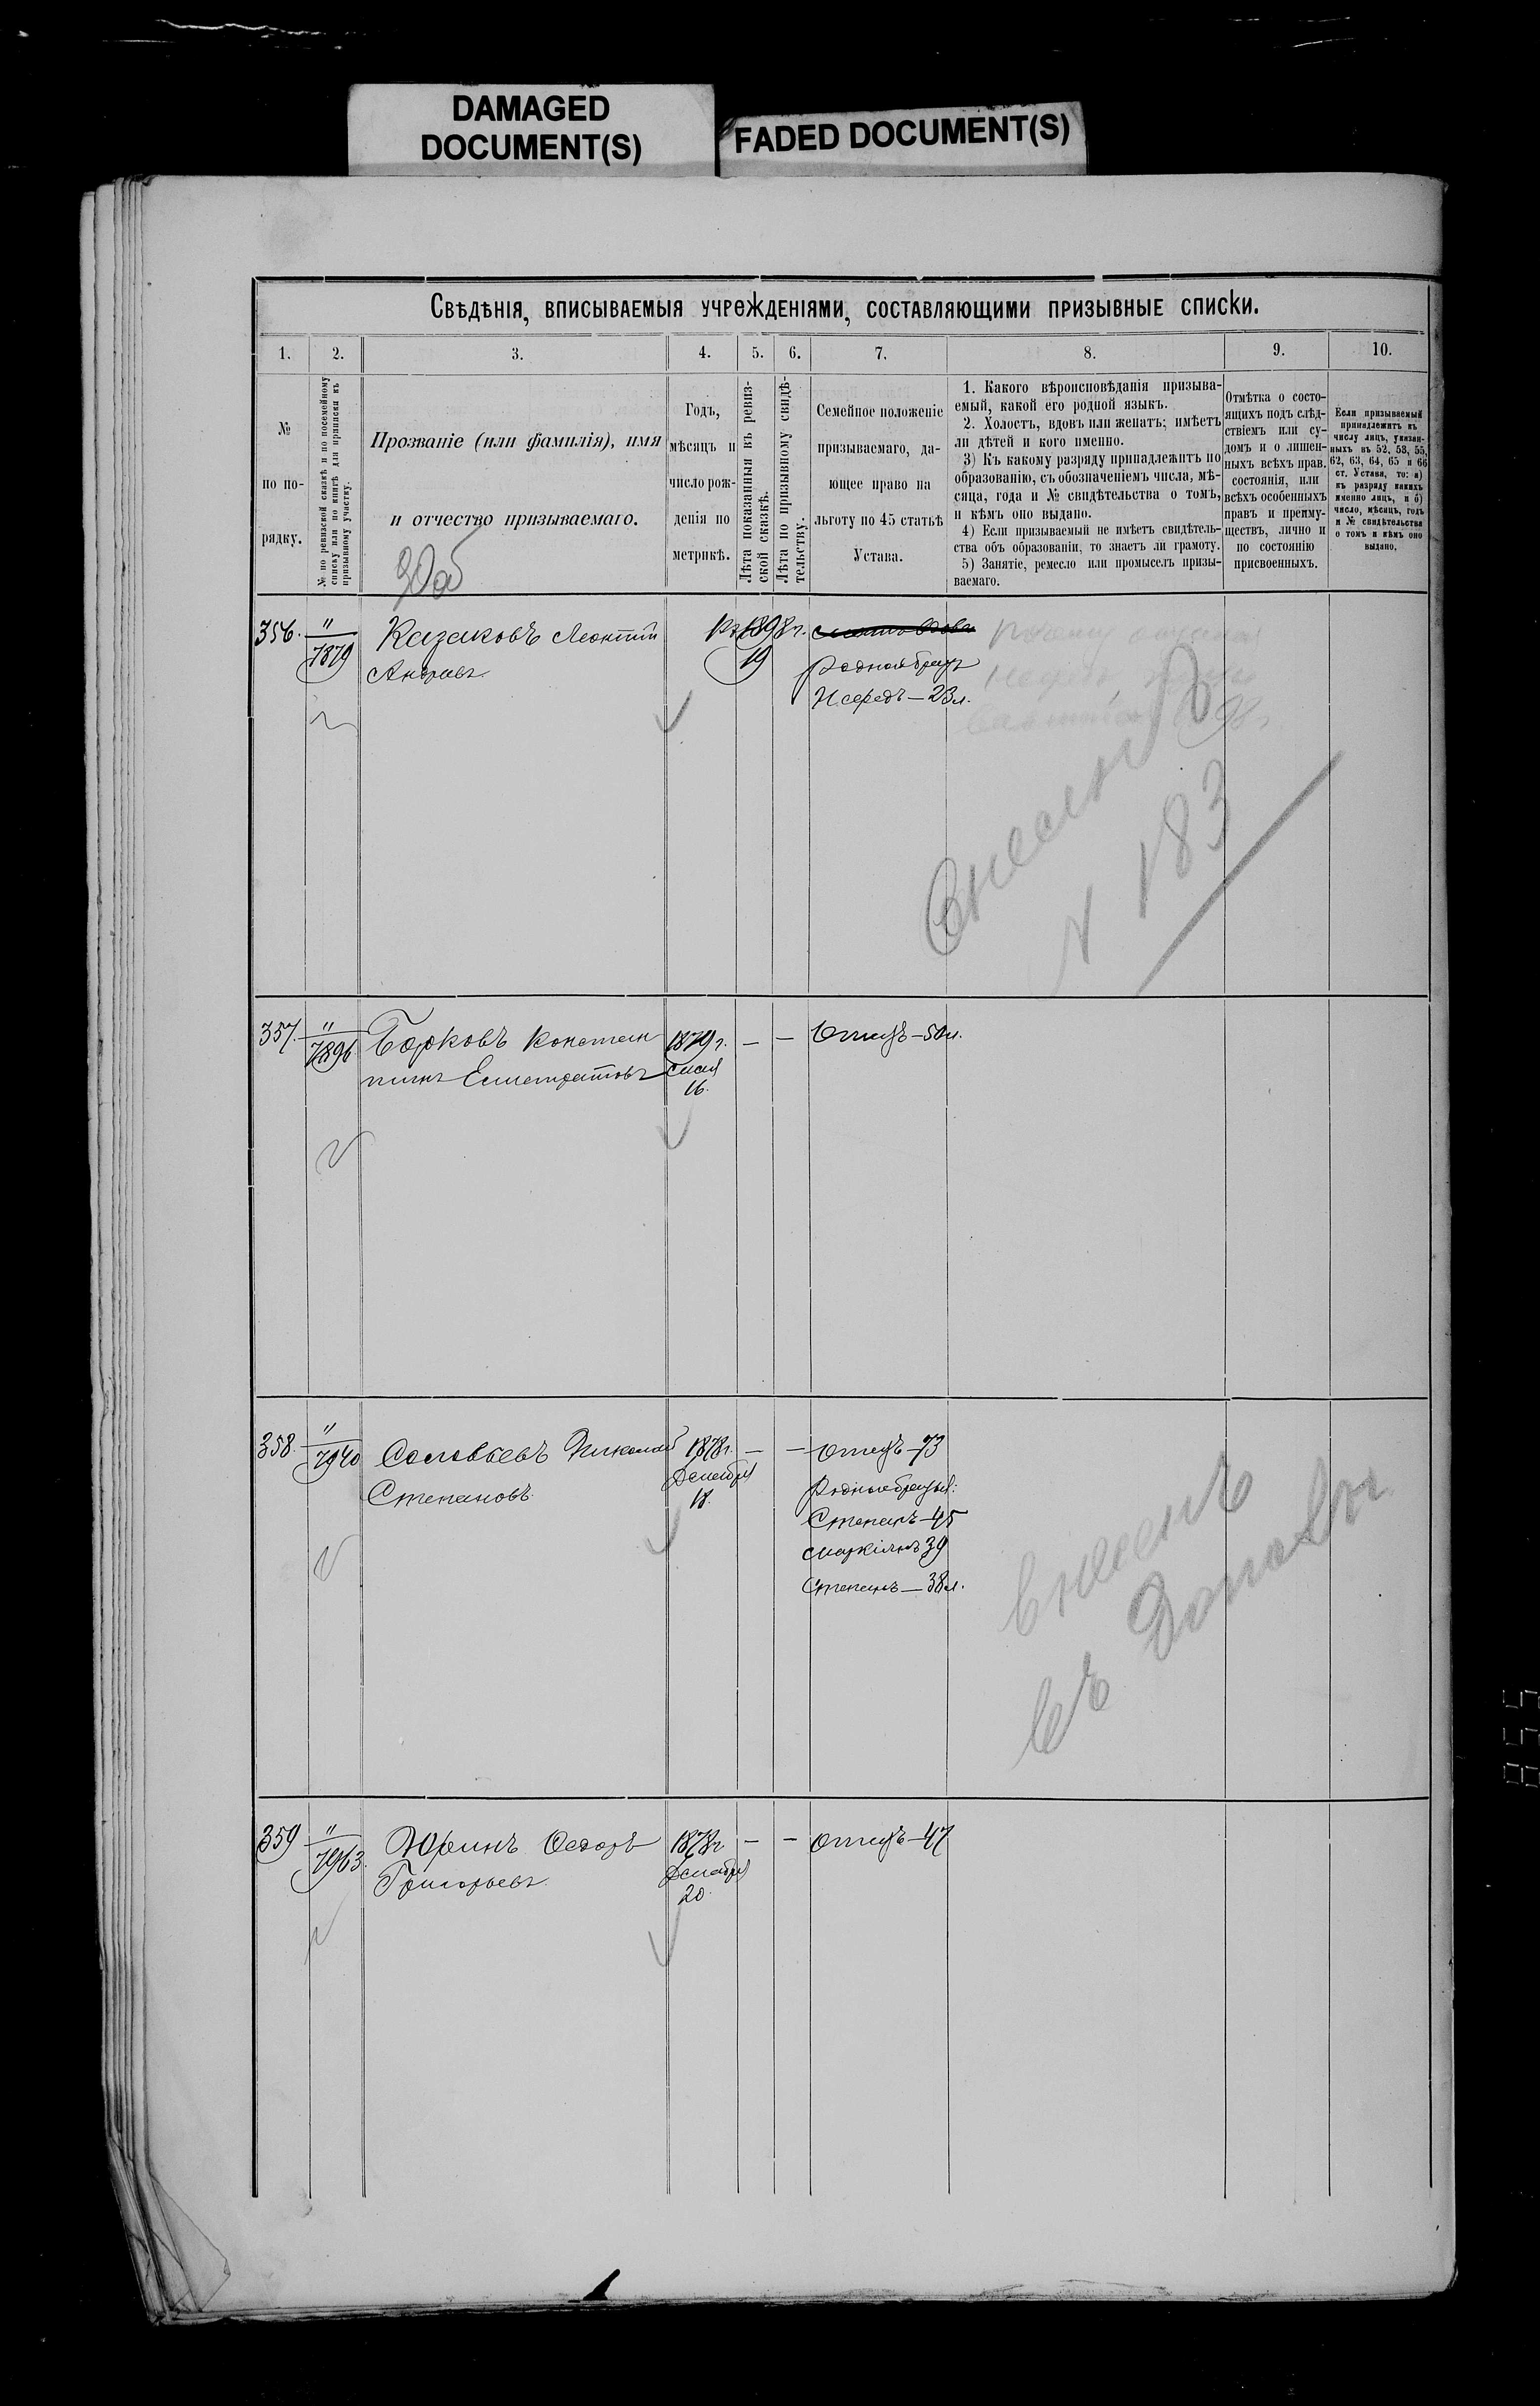 DAMAGED
DOCUMENT(S)
FADED DOCUMENT(S)
Свѣдѣнія, вписываемыя учрежденіями, составляющими призывные списки.
1. 2. 3. 4. 5. 6. 7. 8. 9. 10.
№
по по-
рядку.
№ по ревизской сказкѣ и по посемейному
списку или по книгѣ для приписки къ
призывному участку.
Прозваніе (или фамилія), имя
и отчество призываемаго.
Годъ,
мѣсяцъ и
число рож-
денія по
метрикѣ.
Лѣта показанныя въ ревиз-
ской сказкѣ.
Лѣта по призывному свидѣ-
тельству.
Семейное положеніе
призываемаго, да-
ющее право на
льготу по 45 статьѣ
Устава.
1. Какого вѣроисповѣданія призыва-
емый, какой его родной языкъ.
2. Холостъ, вдовъ или женатъ; имѣетъ
ли дѣтей и кого именно.
3) Къ какому разряду принадлежитъ по
образованію, съ обозначеніемъ числа, мѣ-
сяца, года и № свидѣтельства о томъ,
и кѣмъ оно выдано.
4) Если призываемый не имѣетъ свидѣтель-
ства объ образованіи, то знаетъ ли грамоту.
5) Занятіе, ремесло или промыселъ призы-
ваемаго.
Отмѣтка о состо-
ящихъ подъ слѣд-
ствіемъ или су-
домъ и о лишен-
ныхъ всѣхъ прав.
состоянія, или
всѣхъ особенныхъ
правъ и преиму-
ществъ, лично и
по состоянію
присвоенныхъ.
Если призываемый
принадлежитъ къ
числу лицъ, указан-
ныхъ въ 52, 53, 55,
62, 63, 64, 65 и 66
ст. Устава, то: а)
къ разряду какихъ
именно лицъ, и б)
число, мѣсяцъ, годъ
и № свидѣтельства
о томъ и кѣмъ оно
выдано.
356. " Казаковъ Леонтій 1898 г.
7879 Андреевъ 19 Родной братъ
23 л.
Внесенъ
№ 183
357. " Борковъ Констан 1879 г. — — Отецъ — 50 л.
7896 тинъ Мая
16.
358. " Соловьевъ Николай 1878 г. — — Отецъ — 73
7940 Степановъ Декабря Родные братья:
18. Степанъ — 45
39
Степанъ — 38 л.
Внесенъ
въ
359 " Юринъ Ѳедоръ 1878 г. — — отецъ — 47
7963. Григорьевъ Декабря
20.
855